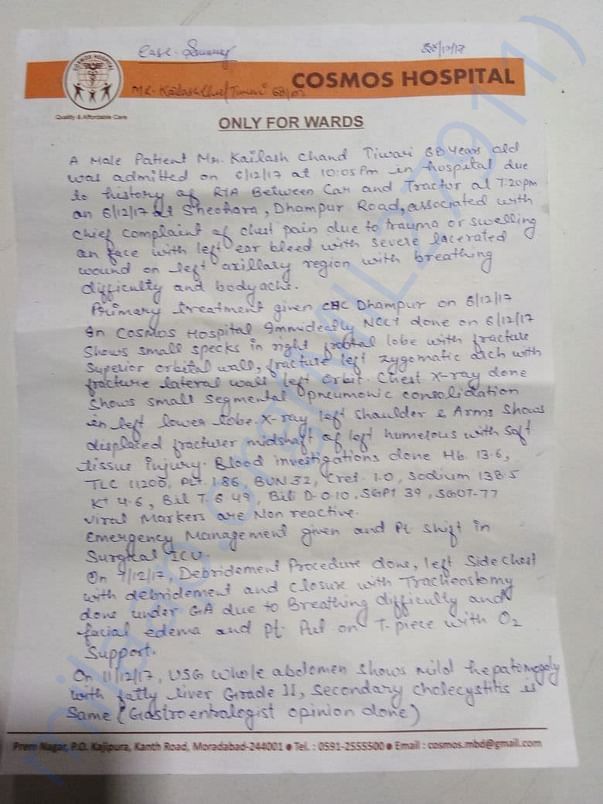 Case Summary
COSMOS HOSPITAL
Quality & Affordable Care
COSMOS HOSPITAL
ONLY FOR WARDS
A Male Patient Mr. Kailash Chand Tiwari 68 years old
was admitted on 6/12/17 at 10:05 Pm in hospital due
to history of RTA Between Car and Tractor at 7:20pm
on 6/12/17 at Sheohara, Dhampur Road, associated with
chief complaint of chest pain due to trauma or swelling
on face with left ear bleed with severe lacerated
wound on left axillary region with breathing
difficulty and bodyache.
Primary treatment given CHC Dhampur on 6/12/17
In COSMOS Hospital Immediely NCCT done on 6/12/17
Shows small specks in right frontal lobe with fracture
Superior orbital wall, fracture left zygomatic arch with
fracture lateral wall left orbit. Chest x-ray done
Shows small segmental pneumonic consolidation
in left lower lobe. X-ray left shoulder & Arms shows
displaced fracturer midshaft of left humerous with soft
tissue injury. Blood investigations done Hb 13.6,
TLC 11200, Plt 1.86, BUN 32, Cret. 1.0, Sodium 138.5
K+ 4.6, Bil T. 0.49, Bil D-0.10, SGPT 39, SGOT-77
Viral Markers are Non reactive.
Emergency Management given and Pt. shift in
Surgical ICU.
On 7/12/17, Debridement Procedure done, left Side chest
with debridement and closure with Tracheostomy
done under GA due to Breathing difficulty and
facial edema and Pt. Put on T. piece with O2
Support.
On 11/12/17, USG whole abdomen shows mild hepatomegaly
with fatty liver Grade II, secondary cholecystitis is
Same (Gastroentralogist opinion done)
Prem Nagar, P.O. Kajipura, Kanth Road, Moradabad-244001 • Tel. : 0591-2555500 • Email : cosmos.mbd@gmail.com